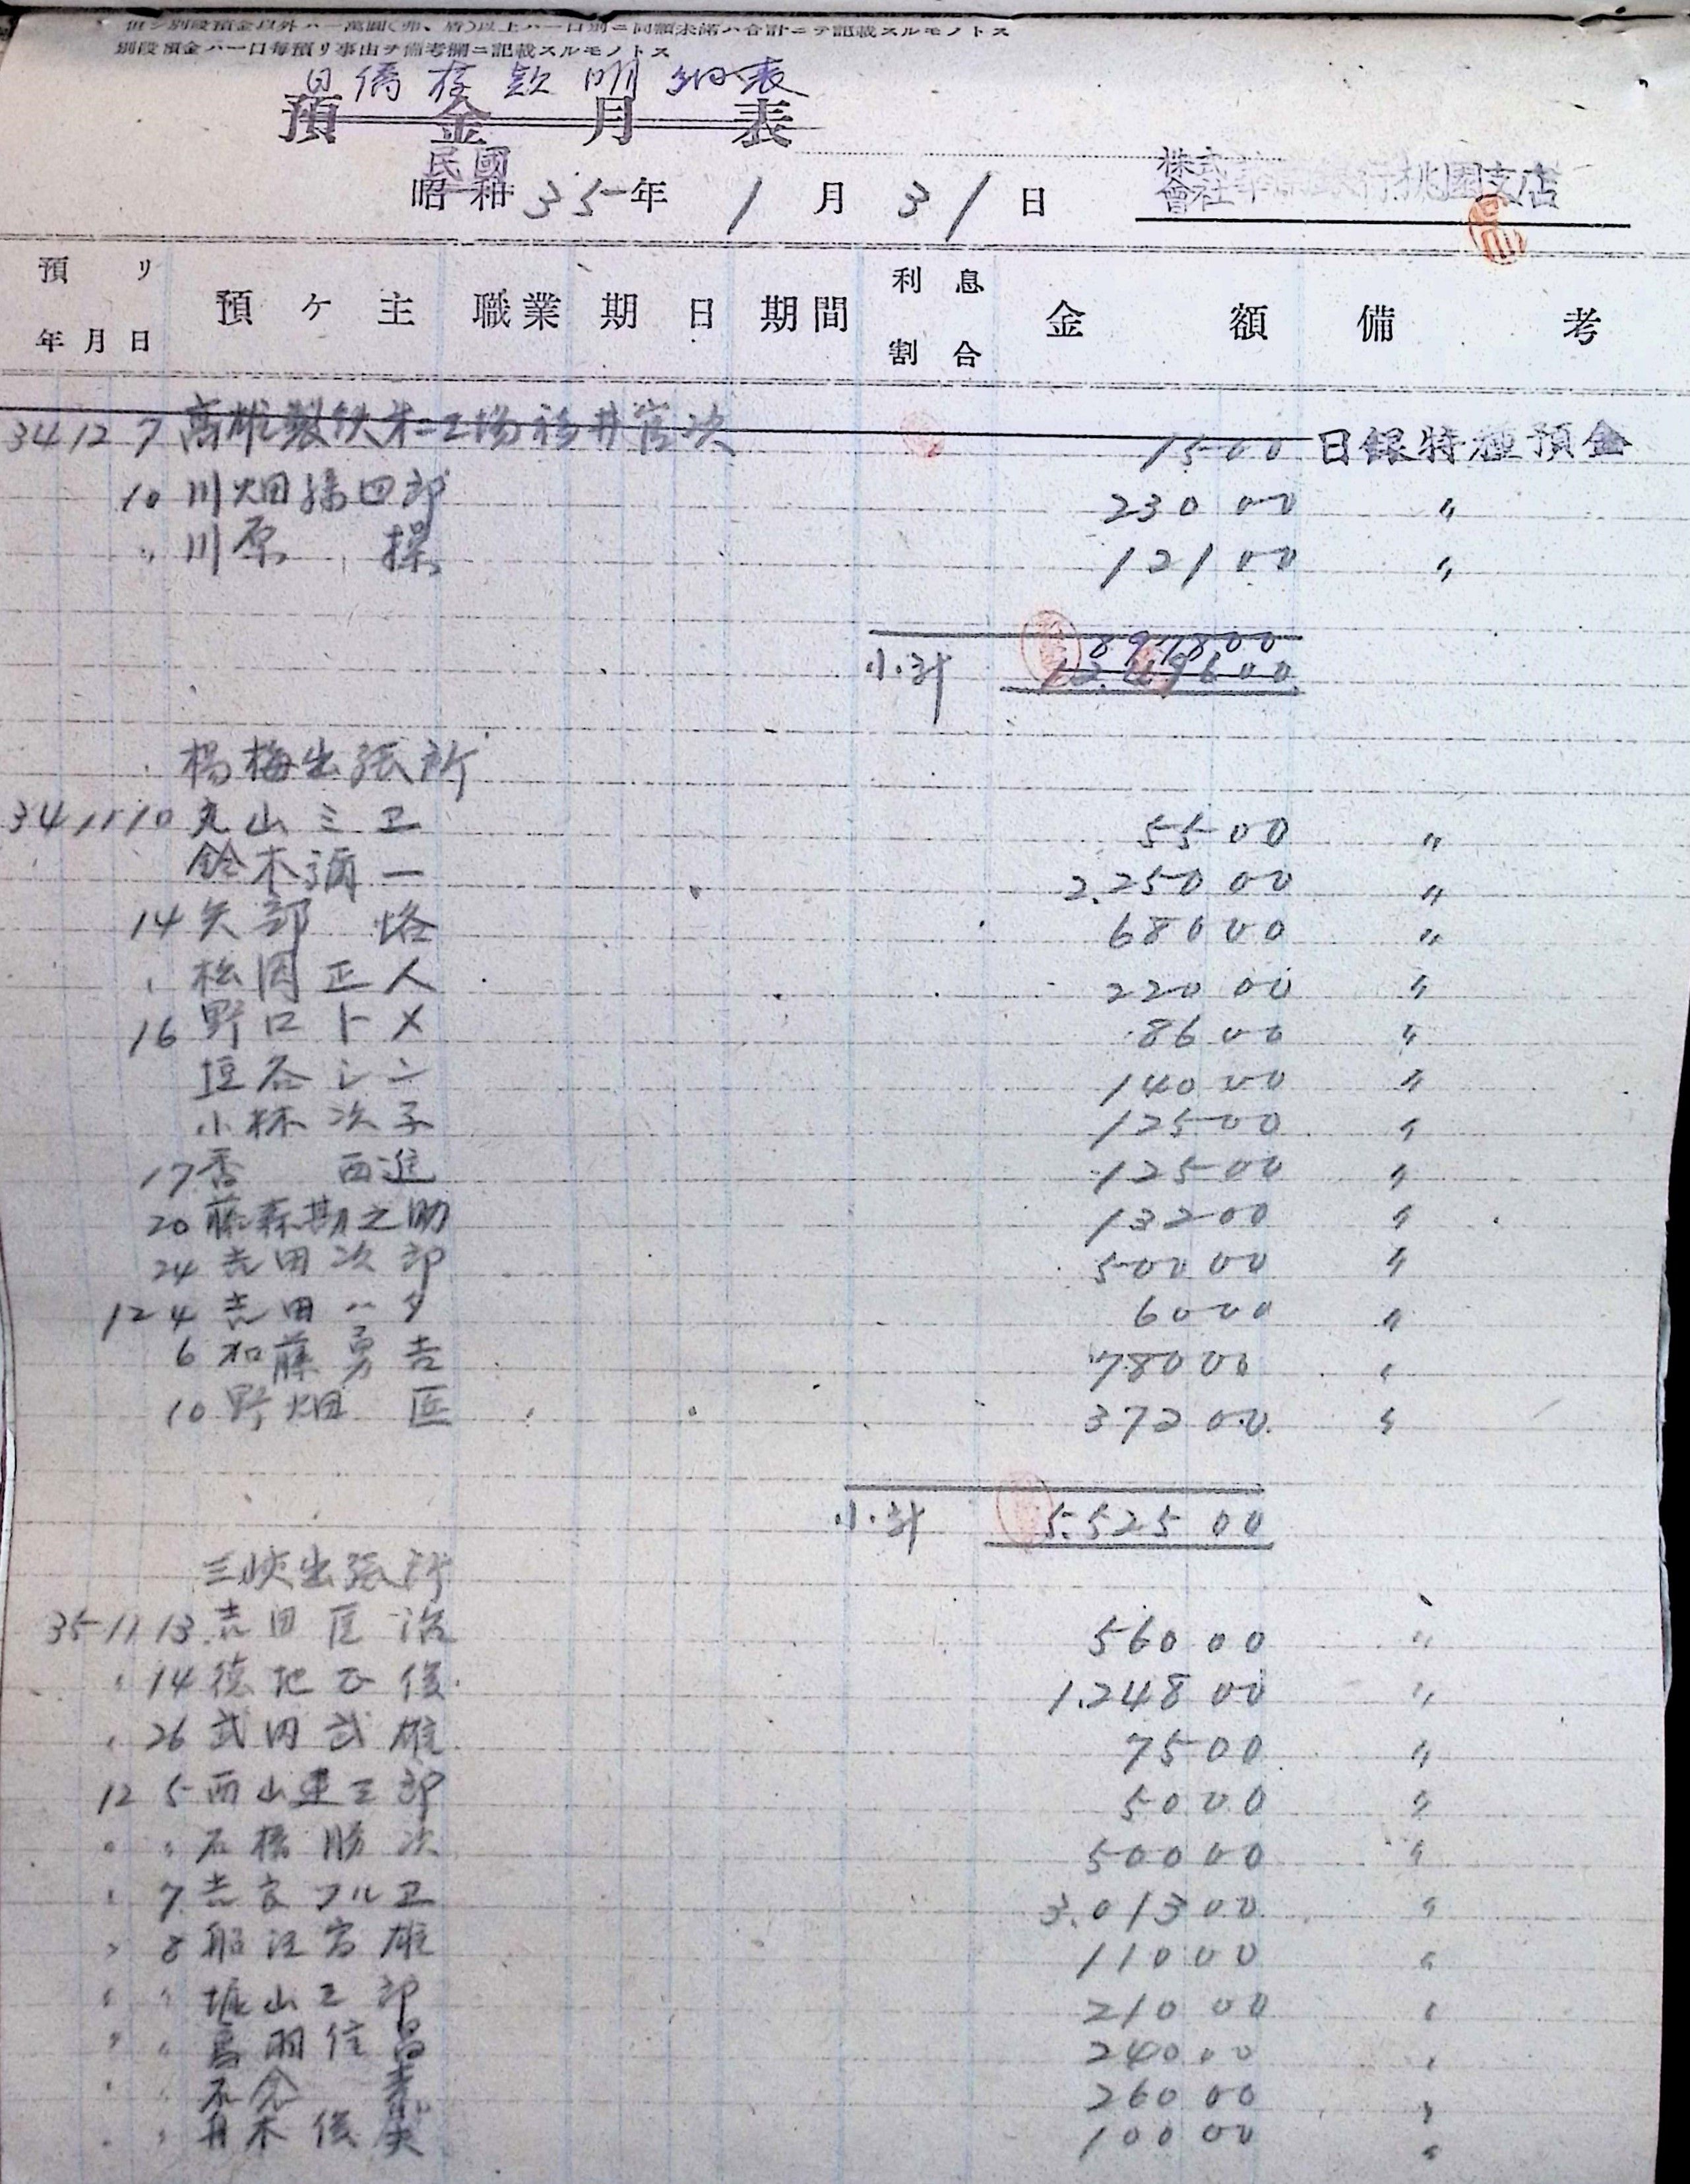 但シ別段預金以外ハ一萬圓(弗、盾)以上ハ一口別ニ同額未滿ハ合計ニテ記載スルモノトス
別段預金ハ一口每預リ事由ヲ備考欄ニ記載スルモノトス
日僑存款明細表
預金月表
民國
昭和35年1月31日
株式會社華南銀行桃園支店
預リ年月日 預ケ主 職業 期日 期間 利息割合 金額 備考
34 12 7 高雄製鉄第二工場 1500 日銀特種預金
10 川畑 四郎 230 00 〃
〃 川原 操 121 00 〃
897800
小計
楊梅出張所
34 11 10 丸山ミエ 55 00 〃
鈴木彌一 2.250 00 〃
14 矢部 恪 680 00 〃
〃 松岡正人 220 00 〃
16 野口トメ 86 00 〃
垣谷シン 140 00 〃
小林次子 125 00 〃
17 香西進 125 00 〃
20 藤森勘之助 132 00 〃
24 吉田次郎 500 00 〃
12 4 吉田ハタ 60 00 〃
6 加藤勇吉 780 00 〃
10 野畑 匡 372 00 〃
小計 5.525 00
三峽出張所
35 11 13 吉田匡治 560 00 〃
〃 14 德地 俊 1.248 00 〃
〃 26 武田武雄 75 00 〃
12 5 西山 三郎 50 00 〃
〃 〃 石橋勝次 500 00 〃
〃 7 吉 フルエ 3.013 00 〃
〃 8 船江富雄 110 00 〃
〃 〃 堀山三郎 210 00 〃
〃 〃 鳥羽信昌 240 00 〃
〃 〃 石倉 260 00 〃
〃 〃 舟木俊英 100 00 〃